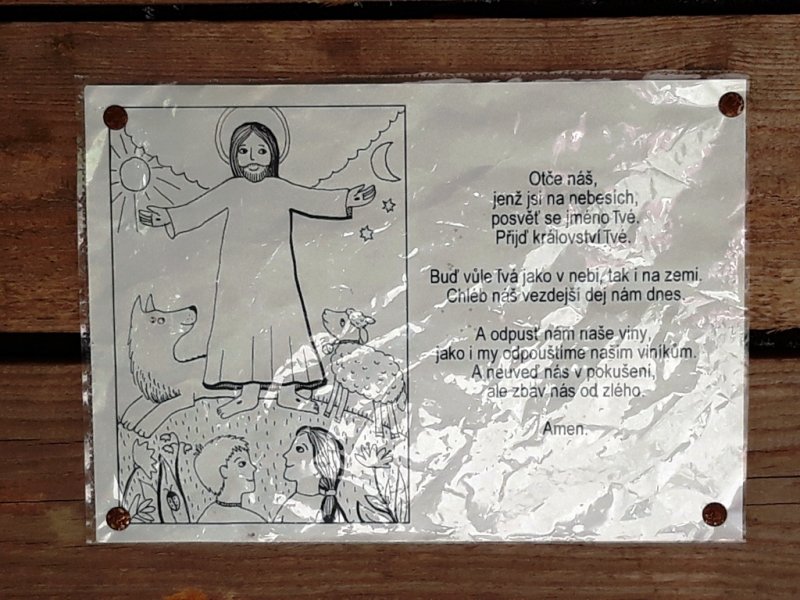 Otče náš,
jenž jsi na nebesích,
posvěť se jméno Tvé.
Přijď království Tvé.
Buď vůle Tvá jako v nebi, tak i na zemi.
Chléb náš vezdejší dej nám dnes.
A odpusť nám naše viny,
jako i my odpouštíme našim viníkům.
A neuveď nás v pokušení,
ale zbav nás od zlého.
Amen.